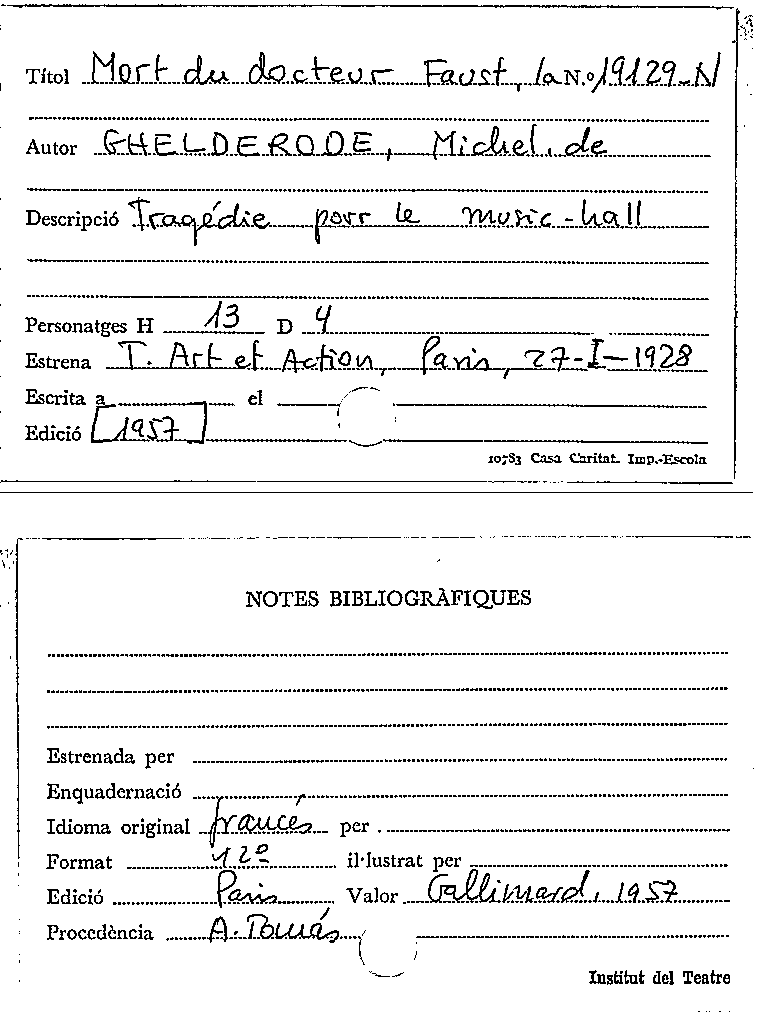 Títol Mort du docteur Faust, la N.º 19129-N
Autor GHELDERODE, Michel, de
Descripció Tragédie pour le music-hall
Personatges H 13 D 4
Estrena T. Art et Action, Paris, 27-I-1928
Escrita a el
Edició [1957]
10783 Casa Caritat. Imp.-Escola
NOTES BIBLIOGRÀFIQUES
Estrenada per
Enquadernació
Idioma original francés per
Format 12º il·lustrat per
Edició Paris Valor Gallimard, 1957
Procedència A. Tomás
Institut del Teatre